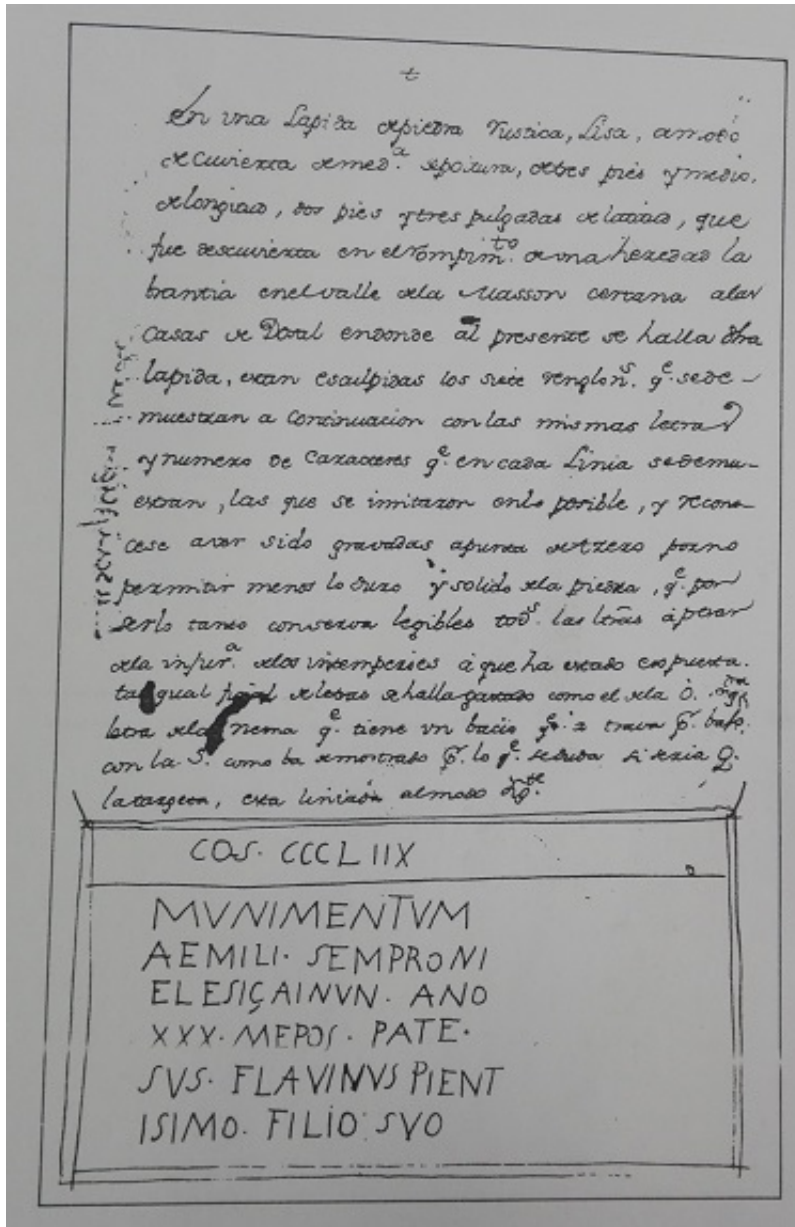 En una Lapida de piedra rustica, Lisa, a modo
de cuvierta de med.ª sepoltura, de tres pies y medio,
de longitud, dos pies y tres pulgadas de latitud, que
fue descuvierta en el rompim.to de una heredad la
brantia en el valle de la Masson cercana a las
Casas de Dosal en donde al presente se halla dha
lapida, estan esculpidas los siete renglon.s q.e se de-
muestran a Continuacion con las mismas letras
y numero de Caracteres q.e en cada Linia se demu-
estran, las que se imitaron en lo posible, y recono-
cese aver sido gravadas a punta de azero por no
permitir menos lo duro y solido de la piedra, q.e por
serlo tanto conserva legibles tod.s las letras á pesar
de la injur.ª de los intemperies á que ha estado expuesta.
tal qual de letras se halla gastado como el de la O.
letra q.e tiene un bacio
con la S. como ba demostrado lo q.e se duda si seria Q.
la targeta, esta liniada al modo sig.te
COS. CCCLIIX
MVNIMENTVM
AEMILI. SEMPRONI
ELESIÇAINVN. ANO
XXX. MEPOS. PATE.
SVS. FLAVINVS PIENT
ISIMO. FILIO SVO